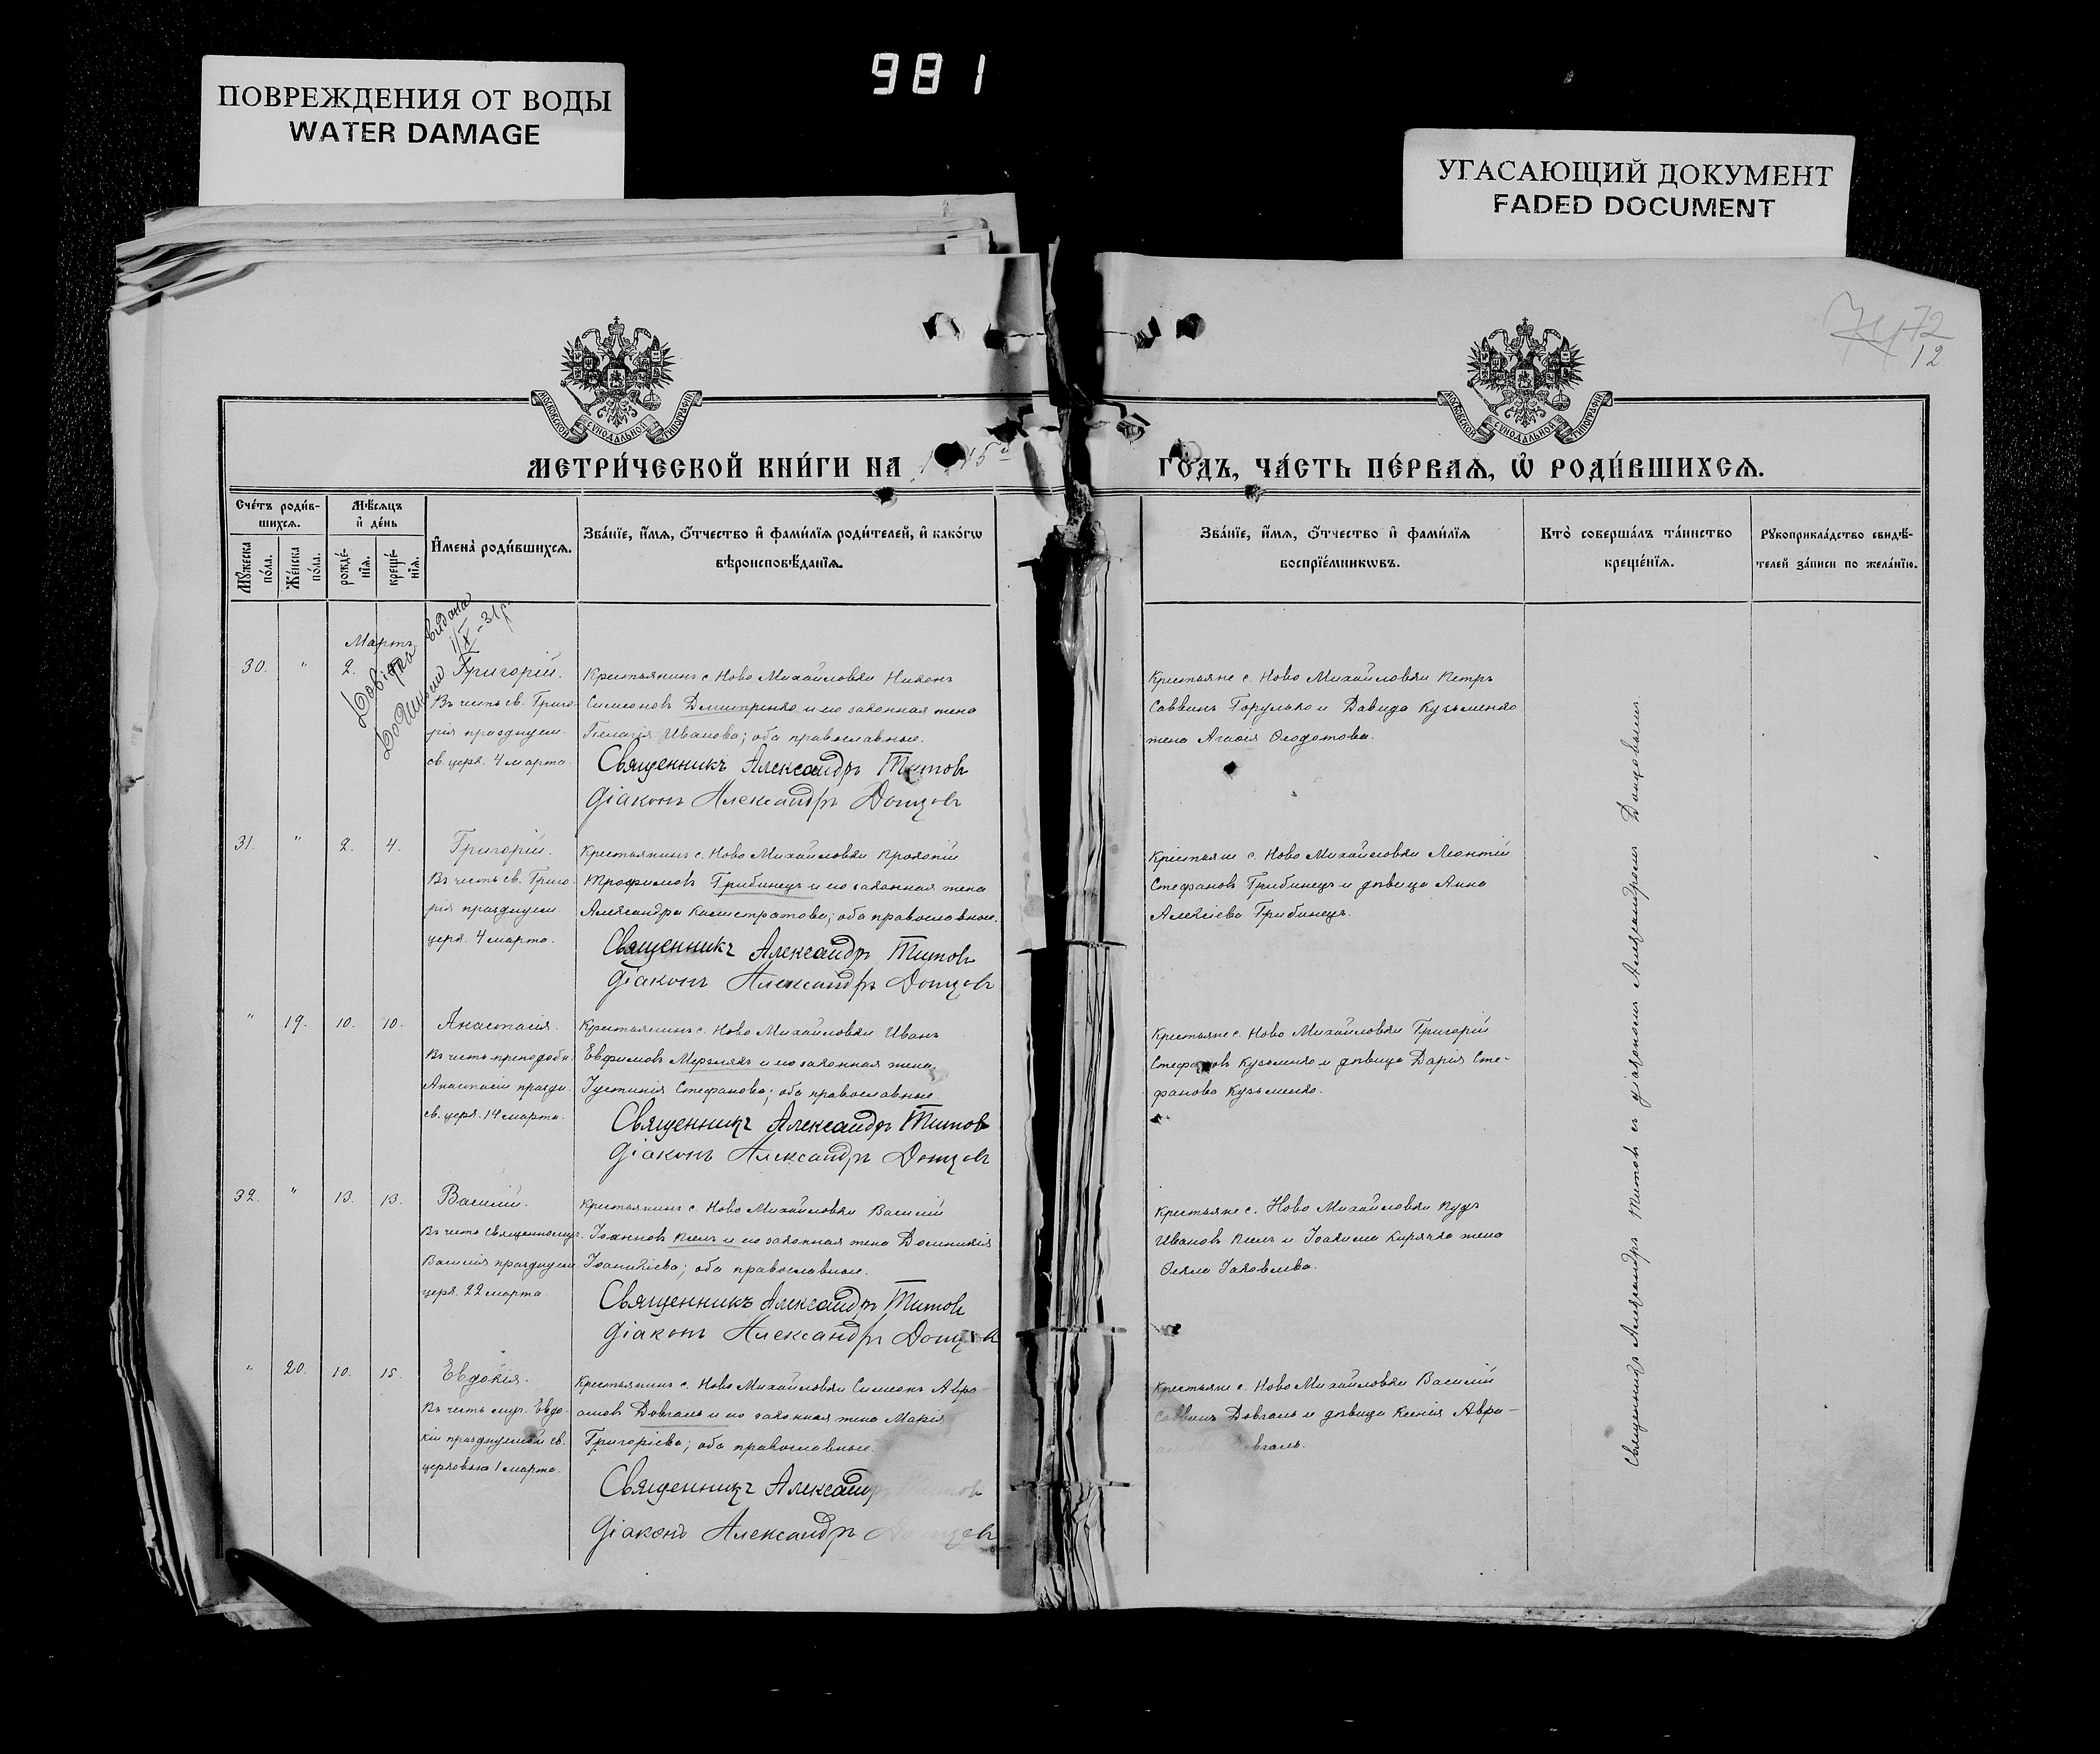 981
ПОВРЕЖДЕНИЯ ОТ ВОДЫ
WATER DAMAGE
УГАСАЮЩИЙ ДОКУМЕНТ
FADED DOCUMENT
72
12
МОСКОВСКОЙ СѴНОДАЛЬНОЙ ТИПОГРАФІИ
МОСКОВСКОЙ СѴНОДАЛЬНОЙ ТИПОГРАФІИ
МЕТРИ́ЧЕСКОЙ КНИ́ГИ НА
ГО́ДЪ, ЧА́СТЬ ПЕ́РВАѦ, Ѡ҆ РОДИ́ВШИХСѦ.
Сче́тъ роди́в-
шихсѧ.
Мꙋ́жеска
по́ла.
Же́нска
по́ла.
Мѣ́сѧцъ
и҆ де́нь
рожде́-
нїѧ.
креще́-
нїѧ.
И҆мена̀ роди́вшихсѧ.
Зва́нїе, и҆́мѧ, ѻ҆́тчество и҆ фами́лїѧ роди́телей, и҆ како́гѡ
вѣроисповѣ́данїѧ.
Зва́нїе, и҆́мѧ, ѻ҆́тчество и҆ фами́лїѧ
воспрїе́мникѡвъ.
Кто̀ соверша́лъ та́инство
креще́нїѧ.
Рꙋкоприкла́дство свидѣ́-
телей за́писи по жела́нїю.
Довідка видана
1/X-31р
Мартъ
30. " 2. Григорій.
Въ честь св. Григо-
рія празднуем.
св. церк. 4 марта.
Крестьянинъ с. Ново Михайловки Никонъ
Симеоновъ Дмитренко и его законная жена
Пелагія Иванова; оба православные.
Священникъ Александръ Титовъ
Діаконъ Александръ Донцовъ
Крестьяне с. Ново Михайловки Петръ
Саввинъ Горулько и Давида Кузьменко
жена Агафія Феодотова.
31. " 2. 4. Григорій.
Въ честь св. Григо-
рія празднуем.
церк. 4 марта.
Крестьянинъ с. Ново Михайловки Прокопій
Трофимовъ Грибинецъ и его законная жена
Александра Калистратова; оба православные.
Священникъ Александръ Титовъ
Діаконъ Александръ Донцовъ
Крестьяне с. Ново Михайловки Леонтій
Стефановъ Грибинецъ и дѣвица Анна
Алексіева Грибинецъ.
" 19. 10. 10. Анастасія.
Въ честь преподобн.
Анастасіи праздн.
св. церк. 14 марта.
Крестьянинъ с. Ново Михайловки Иванъ
Евфимовъ Мерзлякъ и его законная жена
Іустинія Стефанова; оба православные.
Священникъ Александръ Титовъ
Діаконъ Александръ Донцовъ
Крестьяне с. Ново Михайловки Григорій
Стефановъ Кузьменко и дѣвица Дарія Сте-
фанова Кузьменко.
32. " 13. 13. Василій.
Въ честь священномуч.
Василія празднуем.
церк. 22 марта.
Крестьянинъ с. Ново Михайловки Василій
Іоанновъ и его законная жена Домникія
Іоаникіева; оба православные.
Священникъ Александръ Титовъ
Діаконъ Александръ Донцовъ
Крестьяне с. Ново Михайловки Кудъ
Ивановъ и Іоакима Кирячка жена
Фекла Іаковлева.
" 20. 10. 15. Евдокія.
Въ честь муч. Евдо-
кіи празднуемой св.
церковью 1 марта.
Крестьянинъ с. Ново Михайловки Симеонъ Авра-
амовъ Довгаль и его законная жена Марія
Григоріева; оба православные.
Священникъ Александръ Титовъ
Діаконъ Александръ Донцовъ
Крестьяне с. Ново Михайловки Василій
Саввинъ Довгаль и дѣвица Ксенія Авра-
Довгаль.
Священникъ Александръ Титовъ съ діакономъ Александромъ Донцовымъ